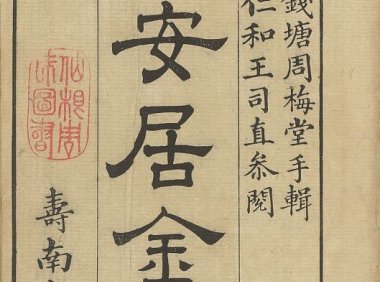 錢塘周梅堂手輯
仁和王司直叅閱
安居金
壽南